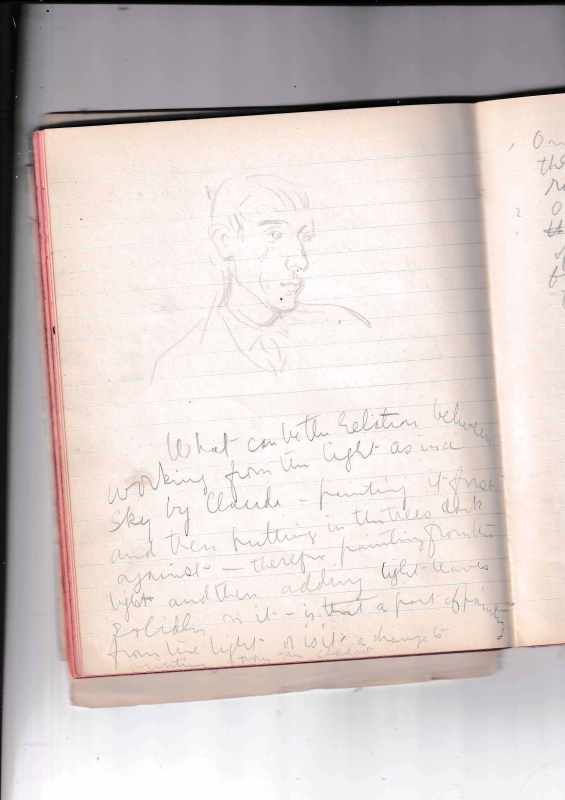 What can be the relation between
working from the light as in a
sky by Claude - painting it first
and then putting in the trees dark
against - therefor painting from the
light and then adding light leaves
on it - is that a part of painting
from the light or is it a change to
painting from the shadow
On
the
o